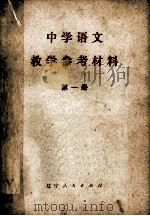 中学语文
教学参考材料
第一册
辽宁人民出版社